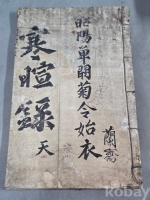 昭陽單閼菊令始衣
蘭齋
寒暄錄
天
Kobay